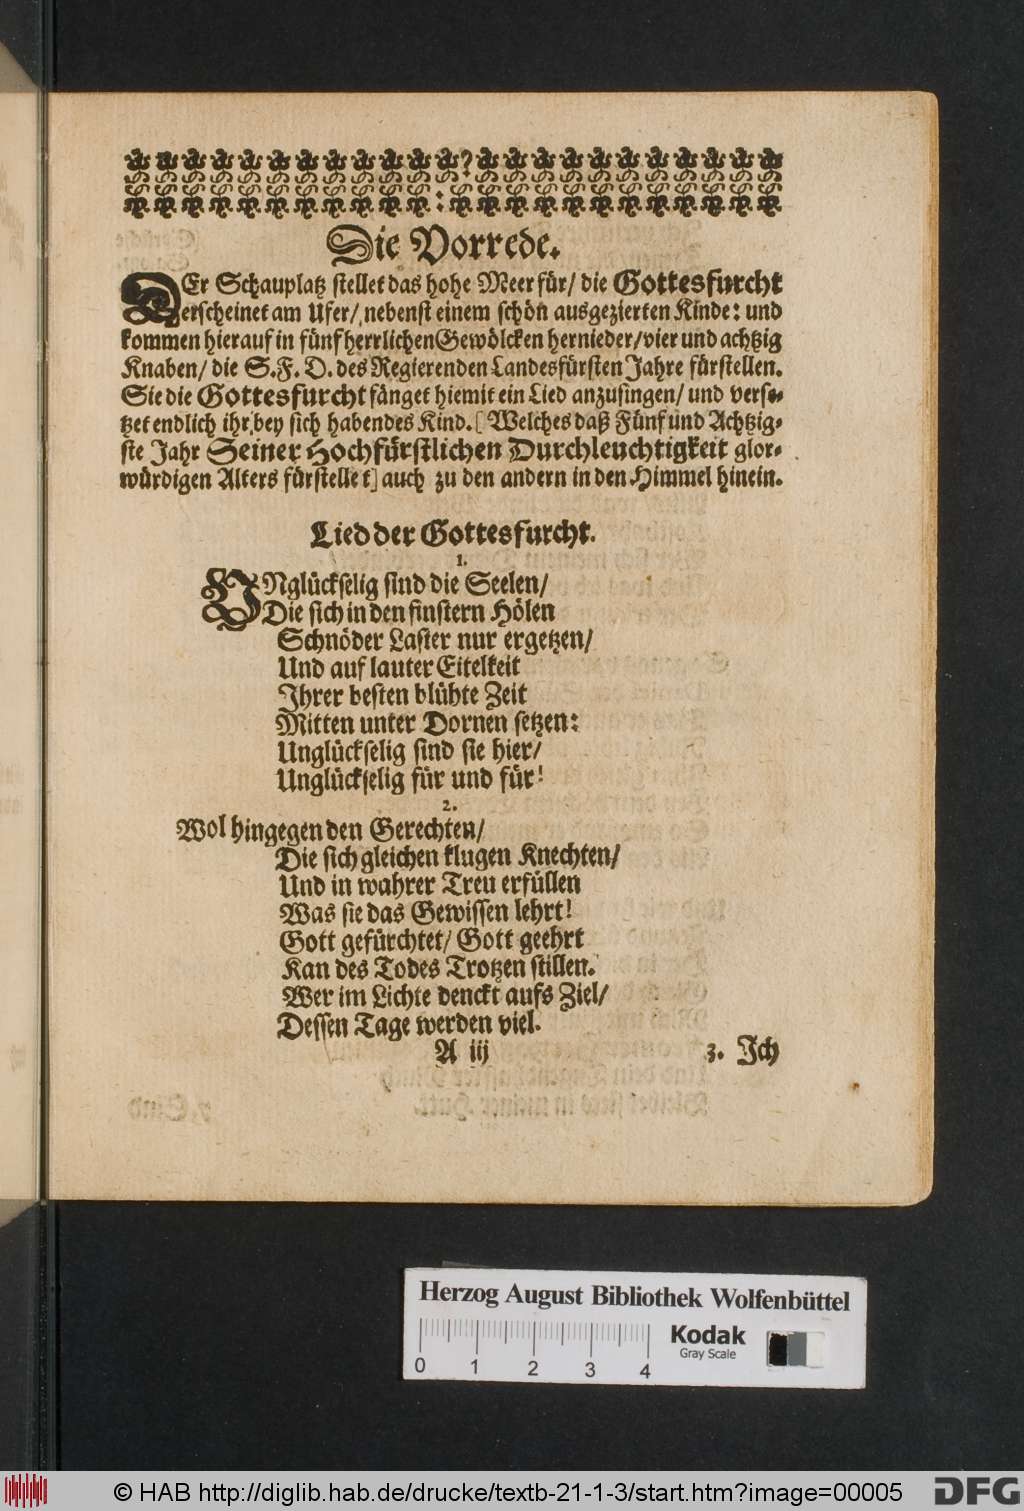 Die Vorrede.
DEr Schauplatz stellet das hohe Meer für/ die Gottesfurcht
erscheinet am Ufer/ nebenst einem schön ausgezierten Kinde: und
kommen hierauf in fünf herrlichen Gewölcken hernieder/ vier und achtzig
Knaben/ die S. F. D. des Regierenden Landesfürsten Jahre fürstellen.
Sie die Gottesfurcht fänget hiemit ein Lied anzusingen/ und verse-
tzet endlich ihr bey sich habendes Kind. [Welches daß Fünf und Achtzig-
ste Jahr Seiner Hochfürstlichen Durchleuchtigkeit glor-
würdigen Alters fürstellet] auch zu den andern in den Himmel hinein.
Lied der Gottesfurcht.
1.
UNglückselig sind die Seelen/
Die sich in den finstern Hölen
Schnöder Laster nur ergetzen/
Und auf lauter Eitelkeit
Ihrer besten blühte Zeit
Mitten unter Dornen setzen:
Unglückselig sind sie hier/
Unglückselig für und für!
2.
Wol hingegen den Gerechten/
Die sich gleichen klugen Knechten/
Und in wahrer Treu erfüllen
Was sie das Gewissen lehrt!
Gott gefürchtet/ Gott geehrt
Kan des Todes Trotzen stillen.
Wer im Lichte denckt aufs Ziel/
Dessen Tage werden viel.
A iij
3. Ich
Herzog August Bibliothek Wolfenbüttel
Kodak
Gray Scale
0 1 2 3 4
© HAB http://diglib.hab.de/drucke/textb-21-1-3/start.htm?image=00005
DFG